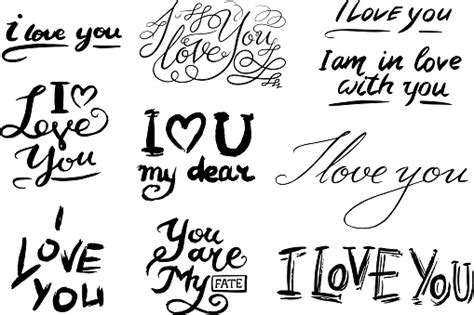 i love you
I love You
I Love you
I am in love
with you
I ♥
Love
You
I ♥ U
my dear
I love you
I
LOVE
YOU
You
are
My
FATE
I LOVE YOU